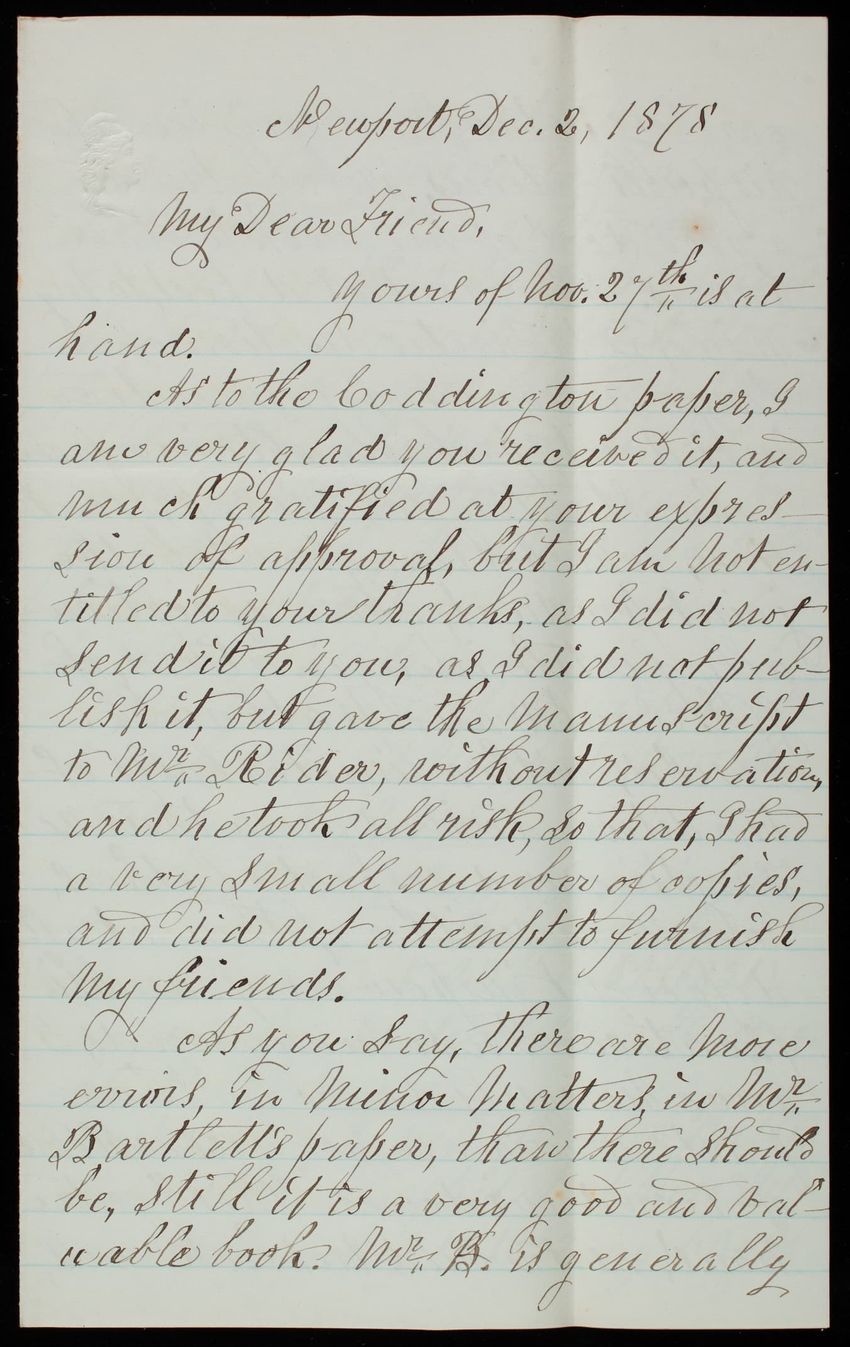 Newport, Dec. 2, 1878
My Dear Friend,
Yours of Nov. 27th is at
hand.
As to the Coddington paper, I
am very glad you received it, and
much gratified at your expres-
sion of approval, but I am not en-
titled to your thanks, as I did not
send it to you, as I did not pub-
lish it, but gave the Manuscript
to Mr. Rider, without reservation,
and he took all risk, so that, I had
a very small number of copies,
and did not attempt to furnish
my friends.
As you say, there are more
errors, in minor matters, in Mr.
Bartlett's paper, than there should
be, still it is a very good and val-
uable book. Mr. B. is generally